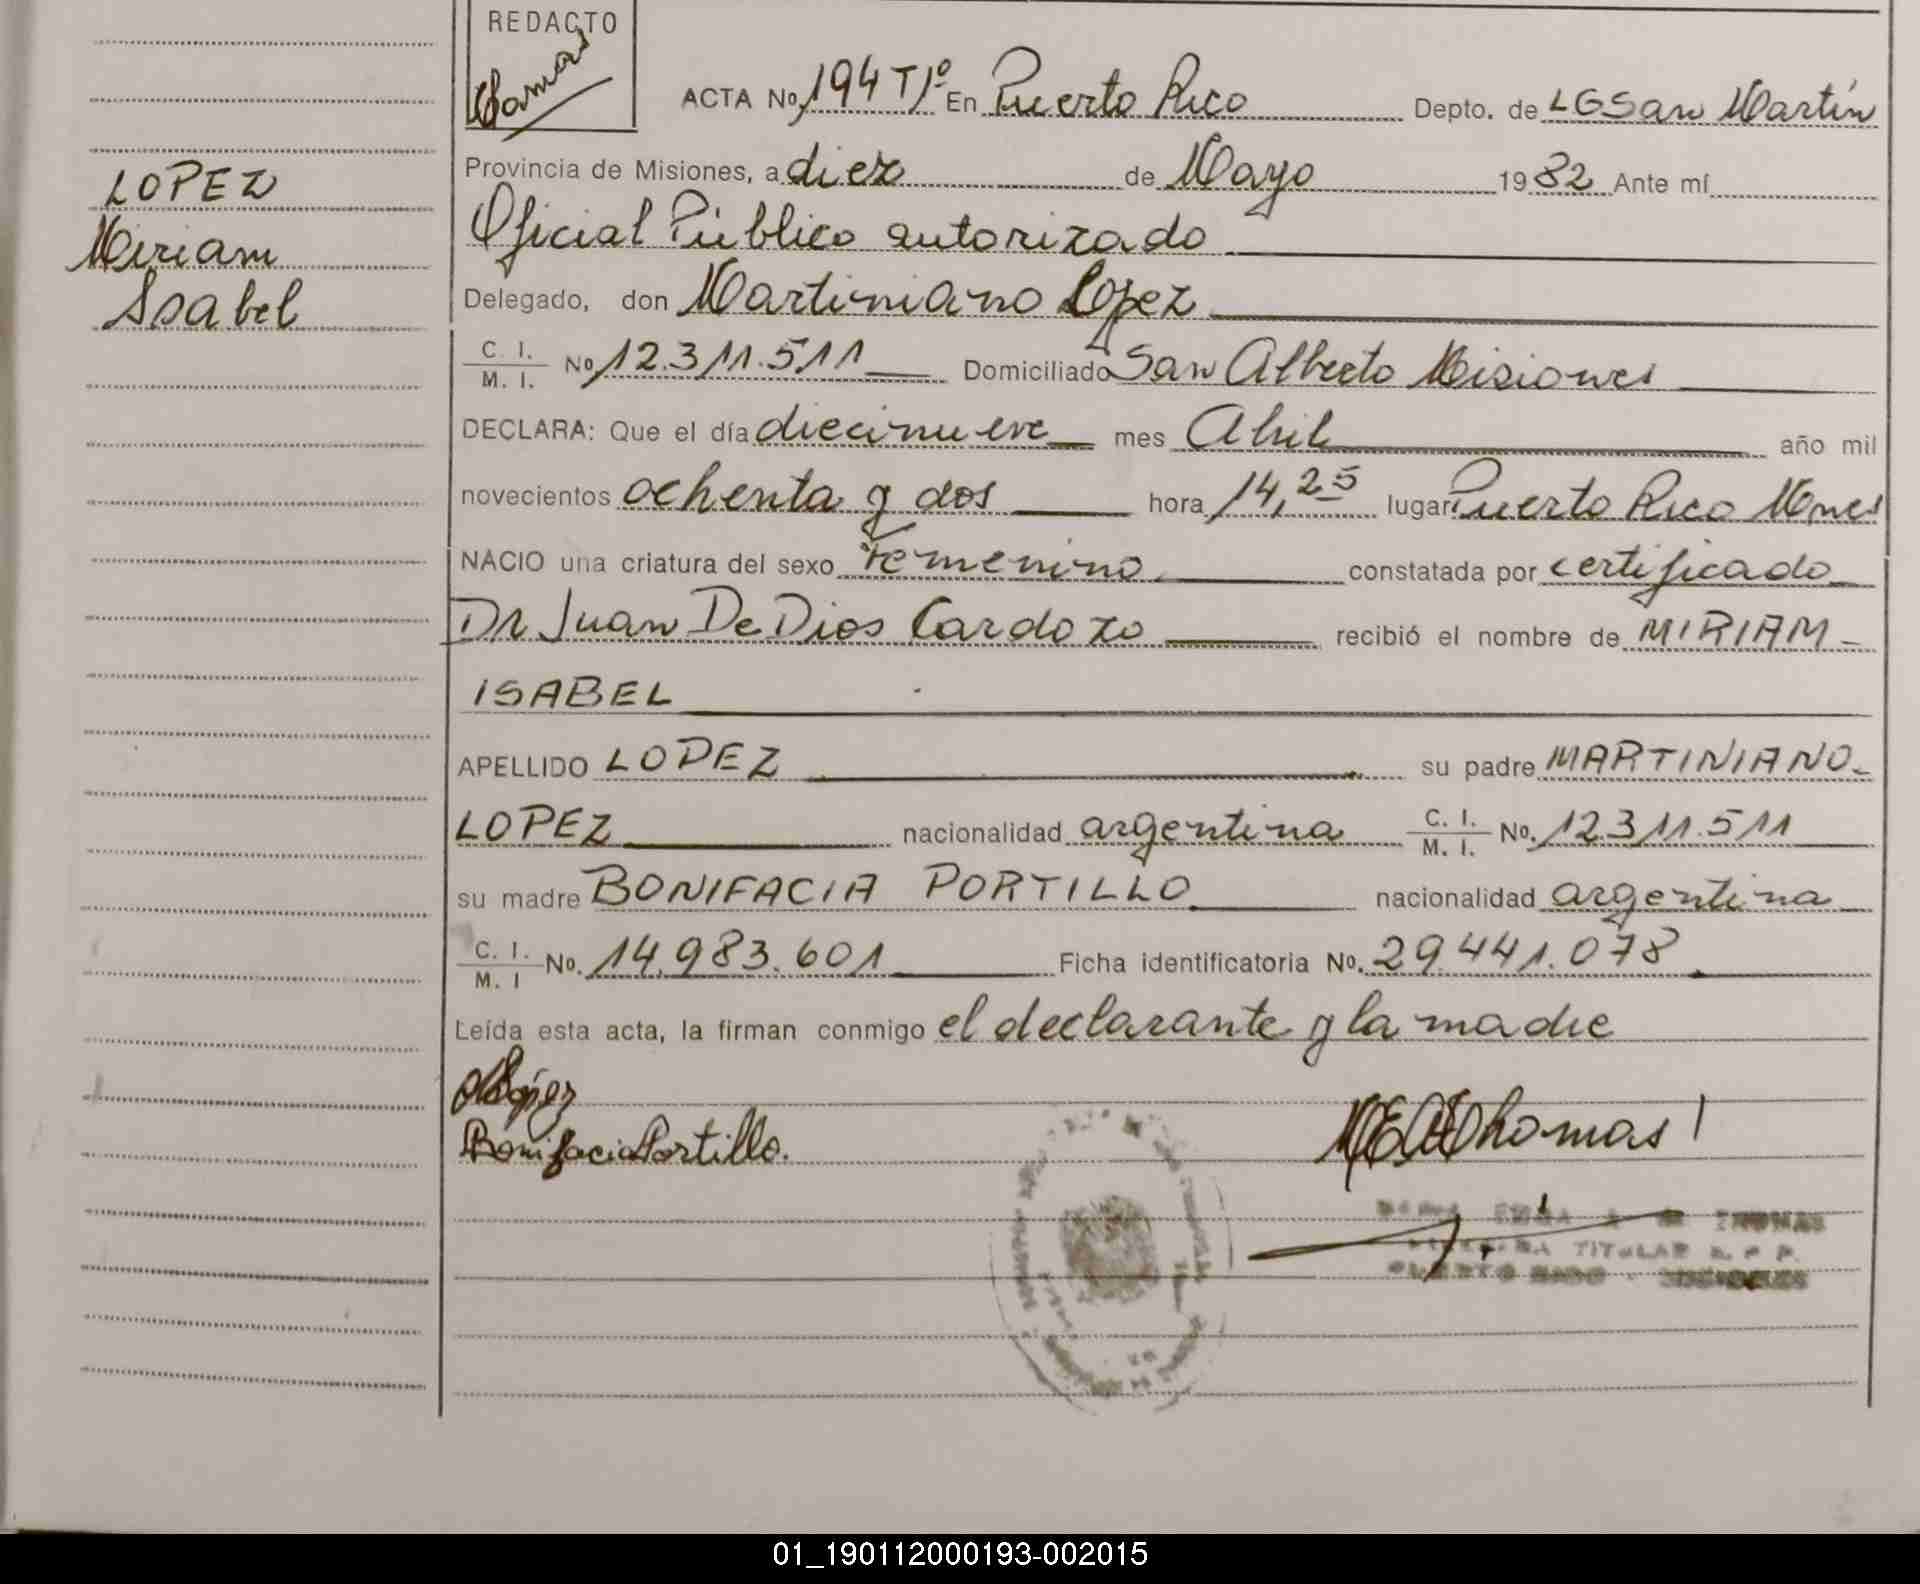 REDACTO
ACTA No. 194 Tº 1º En Puerto Rico Depto. de LGSan Martín
Provincia de Misiones, a diez de Mayo 1982 Ante mí
LOPEZ
Oficial Público autorizado
Miriam
Delegado, don Martiniano Lopez
Isabel
C. I. M. I. No 12.311.511 Domiciliado San Alberto Misiones
DECLARA: Que el día diecinueve mes Abril año mil
novecientos ochenta y dos hora 14,25 lugar Puerto Rico Mnes
NACIO una criatura del sexo Femenino constatada por certificado
Dr Juan De Dios Cardozo recibió el nombre de MIRIAM
ISABEL
APELLIDO LOPEZ su padre MARTINIANO
LOPEZ nacionalidad argentina C. I. M. I. No. 12.311.511
su madre BONIFACIA PORTILLO nacionalidad argentina
C. I. M. I No. 14.983.601 Ficha identificatoria No. 29.441.078
Leída esta acta, la firman conmigo el declarante y la madre
López
Bonifacia Portillo.
Thomas
THOMAS
TITULAR
01_190112000193-002015